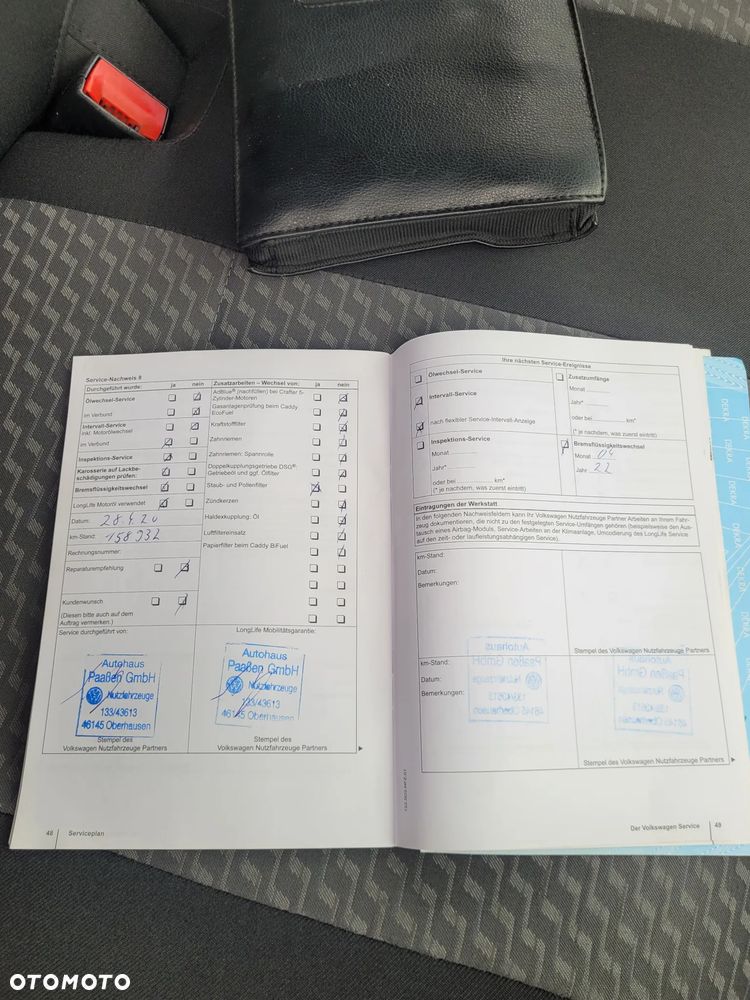 Service-Nachweis 8
Durchgeführt wurde: ja nein
Ölwechsel-Service
im Verbund
Intervall-Service
inkl. Motorölwechsel
im Verbund
Inspektions-Service
Karosserie auf Lackbe-
schädigungen prüfen:
Bremsflüssigkeitswechsel
LongLife Motoröl verwendet
Datum: 28.4.20
km-Stand: 158932
Rechnungsnummer:
Reparaturempfehlung
Kundenwunsch
(Diesen bitte auch auf dem
Auftrag vermerken.)
Service durchgeführt von:
Autohaus
Paaßen GmbH
Nutzfahrzeuge
133/43613
46145 Oberhausen
Stempel des
Volkswagen Nutzfahrzeuge Partners
Zusatzarbeiten – Wechsel von: ja nein
AdBlue® (nachfüllen) bei Crafter 5-
Zylinder-Motoren
Gasanlagenprüfung beim Caddy
EcoFuel
Kraftstofffilter
Zahnriemen
Zahnriemen: Spannrolle
Doppelkupplungsgetriebe DSG®:
Getriebeöl und ggf. Ölfilter
Staub- und Pollenfilter
Zündkerzen
Haldexkupplung: Öl
Luftfiltereinsatz
Papierfilter beim Caddy BiFuel
LongLife Mobilitätsgarantie:
Autohaus
Paaßen GmbH
Nutzfahrzeuge
133/43613
46145 Oberhausen
Stempel des
Volkswagen Nutzfahrzeuge Partners
48 Serviceplan
Ihre nächsten Service-Ereignisse
Ölwechsel-Service
Intervall-Service
nach flexibler Service-Intervall-Anzeige
Inspektions-Service
Monat
Jahr*
oder bei km*
(* je nachdem, was zuerst eintritt)
Zusatzumfänge
Monat
Jahr*
oder bei km*
(* je nachdem, was zuerst eintritt)
Bremsflüssigkeitswechsel
Monat 04
Jahr 22
Eintragungen der Werkstatt
In den folgenden Nachweisfeldern kann Ihr Volkswagen Nutzfahrzeuge Partner Arbeiten an Ihrem Fahr-
zeug dokumentieren, die nicht zu den festgelegten Service-Umfängen gehören (beispielsweise den Aus-
tausch eines Airbag-Moduls, Service-Arbeiten an der Klimaanlage, Umcodierung des LongLife Service
auf den zeit- oder laufleistungsabhängigen Service).
km-Stand:
Datum:
Bemerkungen:
Stempel des Volkswagen Nutzfahrzeuge Partners
km-Stand:
Datum:
Bemerkungen:
Stempel des Volkswagen Nutzfahrzeuge Partners
Der Volkswagen Service 49
DEKRA
OTOMOTO